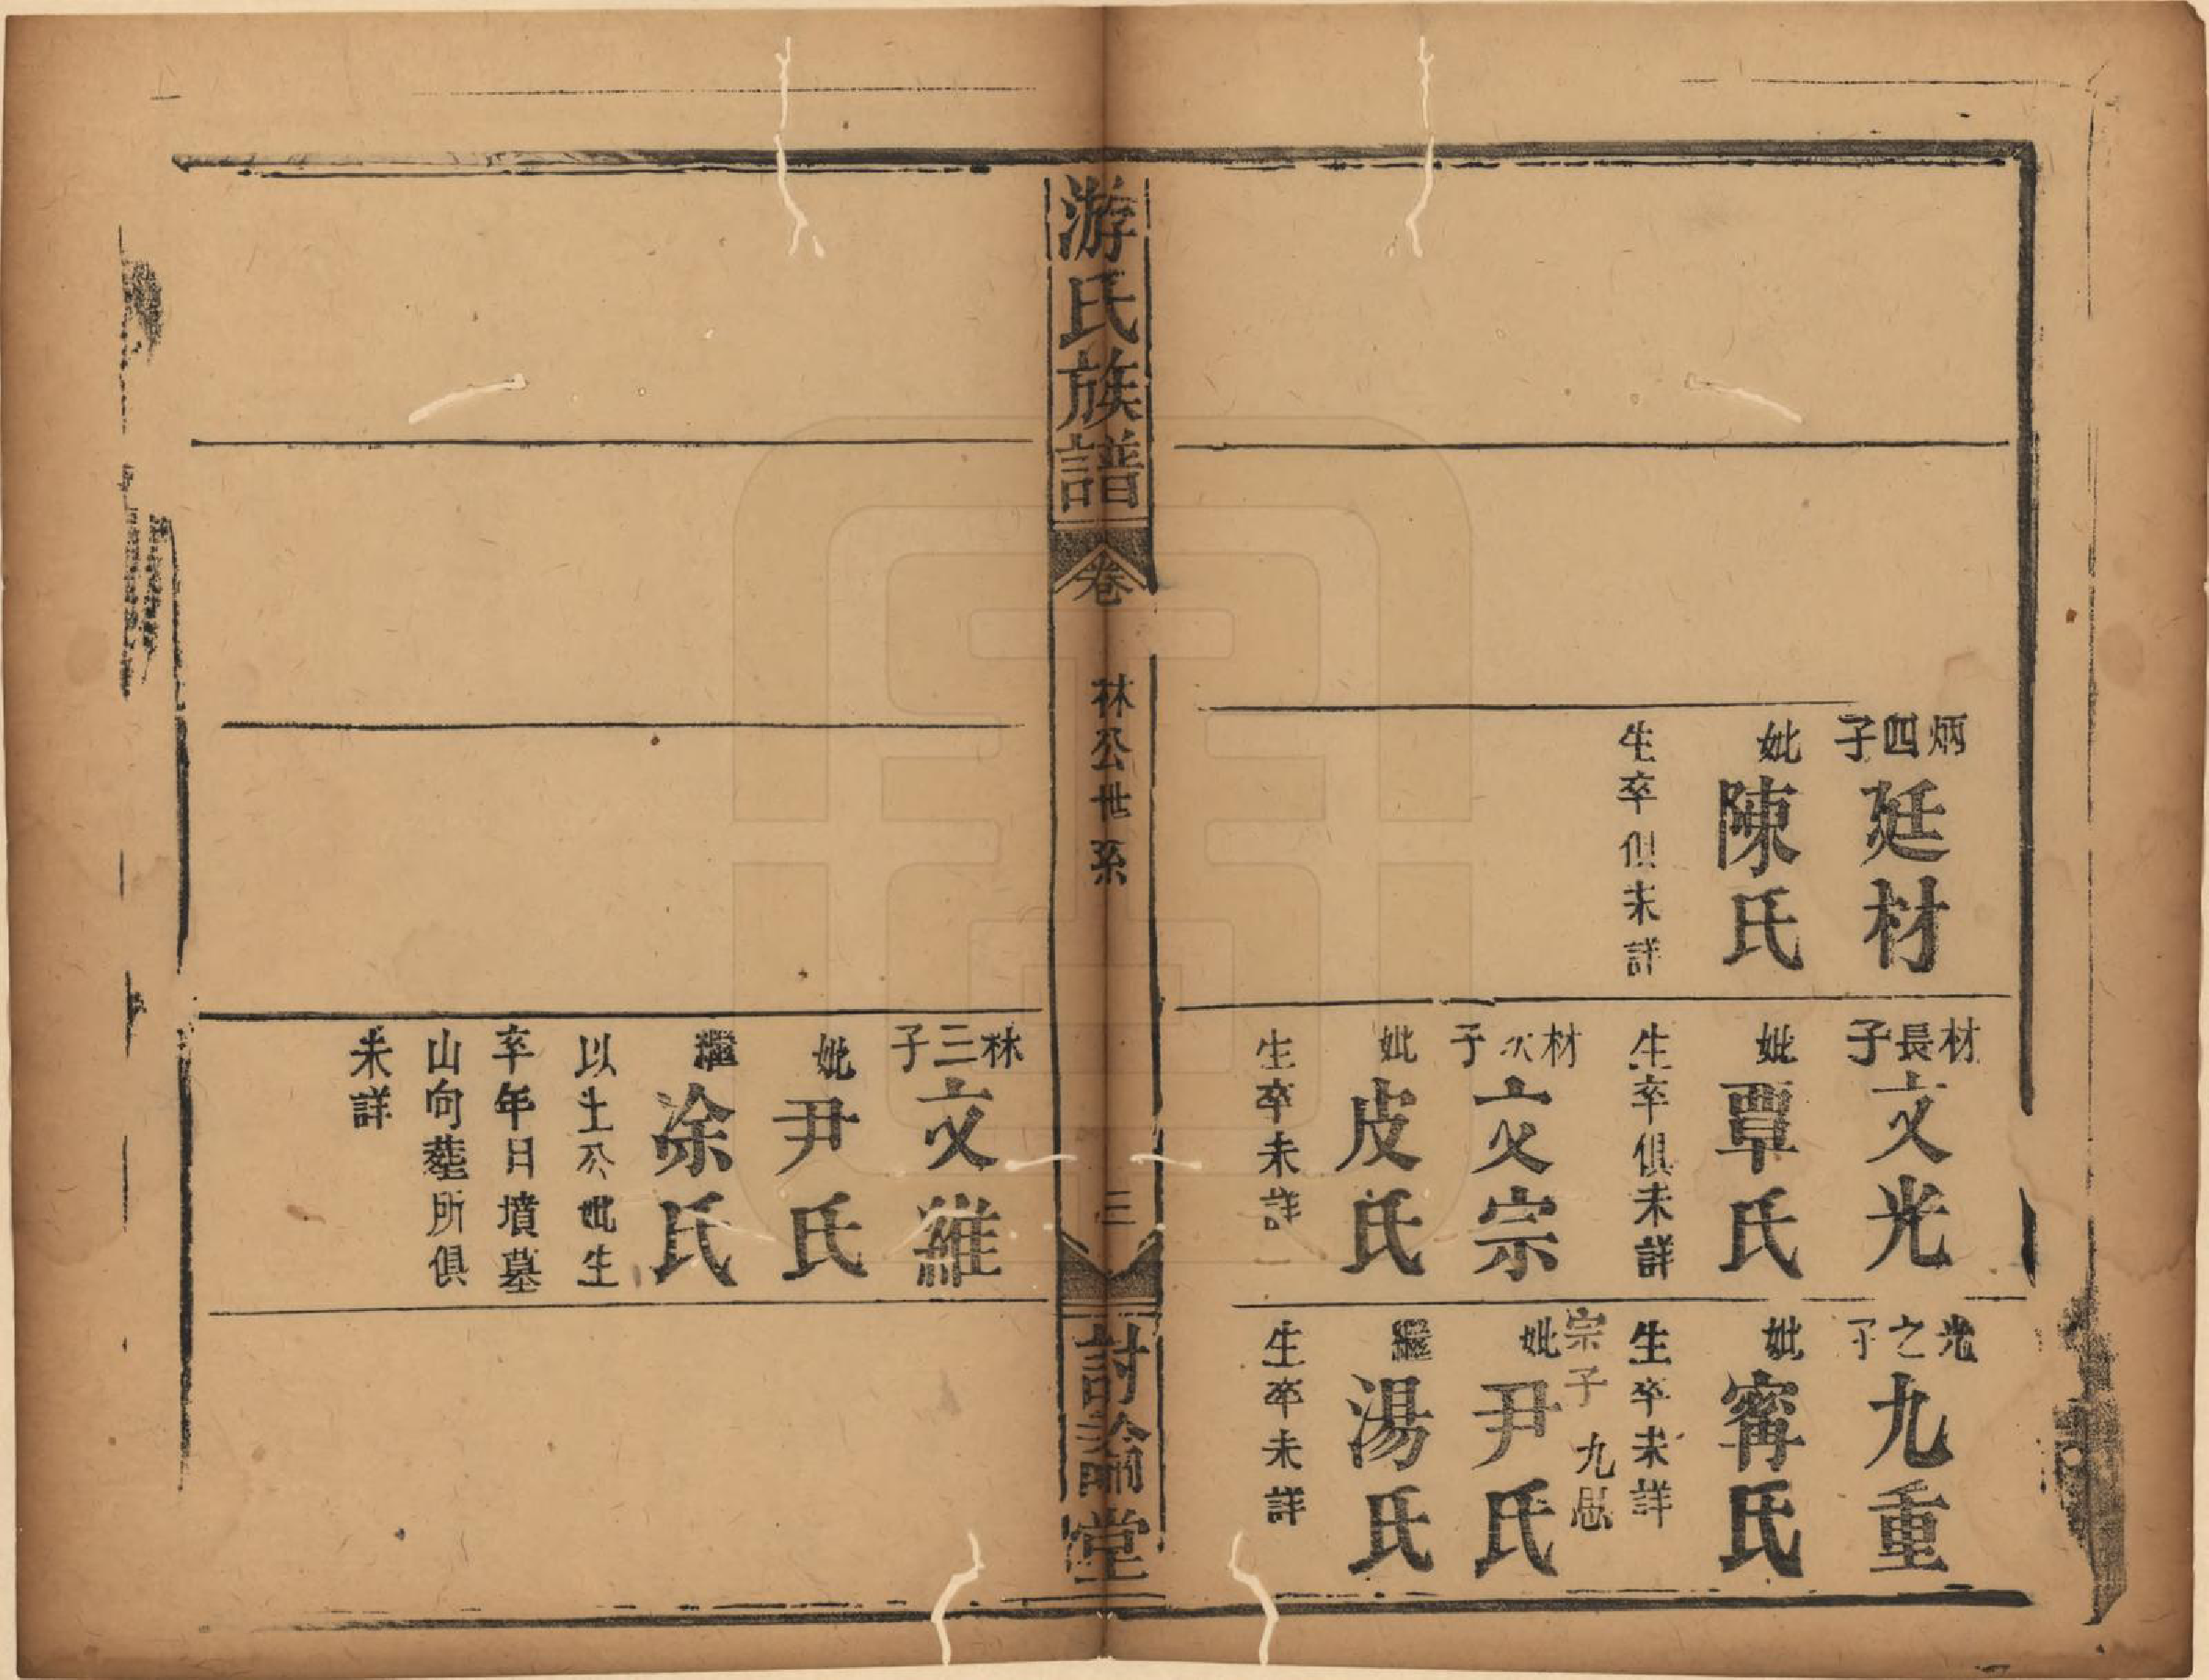 炳四子廷材
妣陳氏
生卒俱未詳
材長子文光
妣覃氏
生卒俱未詳
材次子文宗
妣皮氏
生卒未詳
光之子九重
妣甯氏
生卒未詳
宗子 九思
妣尹氏
繼湯氏
生卒未詳
游氏族譜
卷
林公世系
三
討論堂
林三子文維
妣尹氏
繼涂氏
以上公妣生
卒年月墳墓
山向塟所俱
未詳